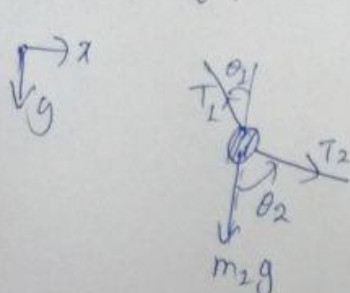 x
y
θ₁
T₁
T₂
θ₂
m₂g